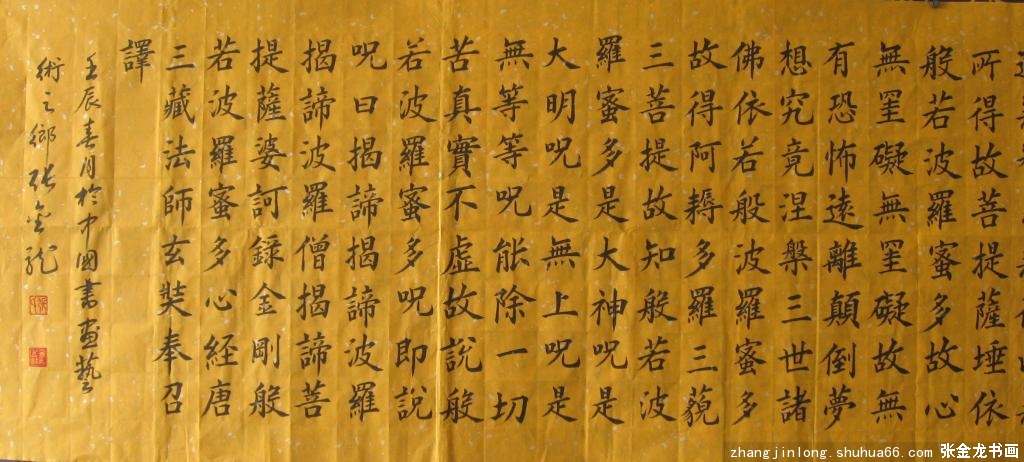 所得故菩提薩埵依
般若波羅蜜多故心
無罣礙無罣礙故無
有恐怖遠離顛倒夢
想究竟涅槃三世諸
佛依若般波羅蜜多
故得阿耨多羅三藐
三菩提故知般若波
羅蜜多是大神呪是
大明呪是無上呪是
無等等呪能除一切
苦真實不虛故說般
若波羅蜜多呪即說
呪曰揭諦揭諦波羅
揭諦波羅僧揭諦菩
提薩婆訶錄金剛般
若波羅蜜多心経唐
三藏法師玄奘奉召
譯
壬辰春月於中國書画藝
術之鄉張金龍
zhangjinlong.shuhua66.com 张金龙书画